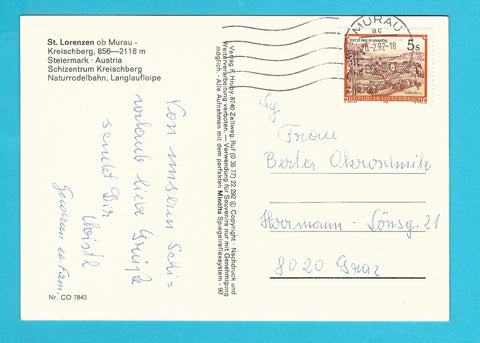 St. Lorenzen ob Murau -
Kreischberg, 856—2118 m
Steiermark · Austria
Schizentrum Kreischberg
Naturrodelbahn, Langlaufloipe
Von unserem Schi=
urlaub liebe Grüße
sendet Dir
Christl
u. Fam.
Nr. CO 7843
Verlag F. Hruby 8740 Zeltweg, Ruf (0 35 77) 22 292 © Copyright · Nachdruck und
Weiterverarbeitung verboten. — Verwendung für Souvenirs nur mit Genehmigung
möglich. - Alle Aufnahmen mit dem perfekten Minolta Spiegelreflexsystem - 90
MURAU
ac
2.92-18
5s
REPUBLIK ÖSTERREICH
Frau
Berta
Hormann-
8020 Graz